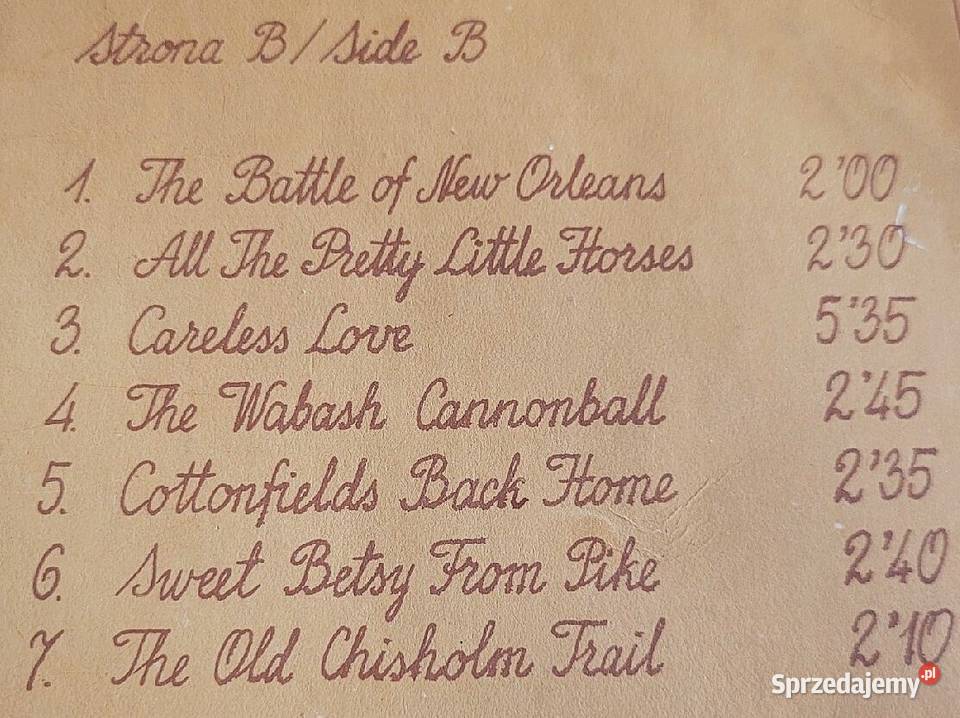 Strona B / Side B
1. The Battle of New Orleans 2'00
2. All The Pretty Little Horses 2'30
3. Careless Love 5'35
4. The Wabash Cannonball 2'45
5. Cottonfields Back Home 2'35
6. Sweet Betsy From Pike 2'40
7. The Old Chisholm Trail 2'10
Sprzedajemy.pl